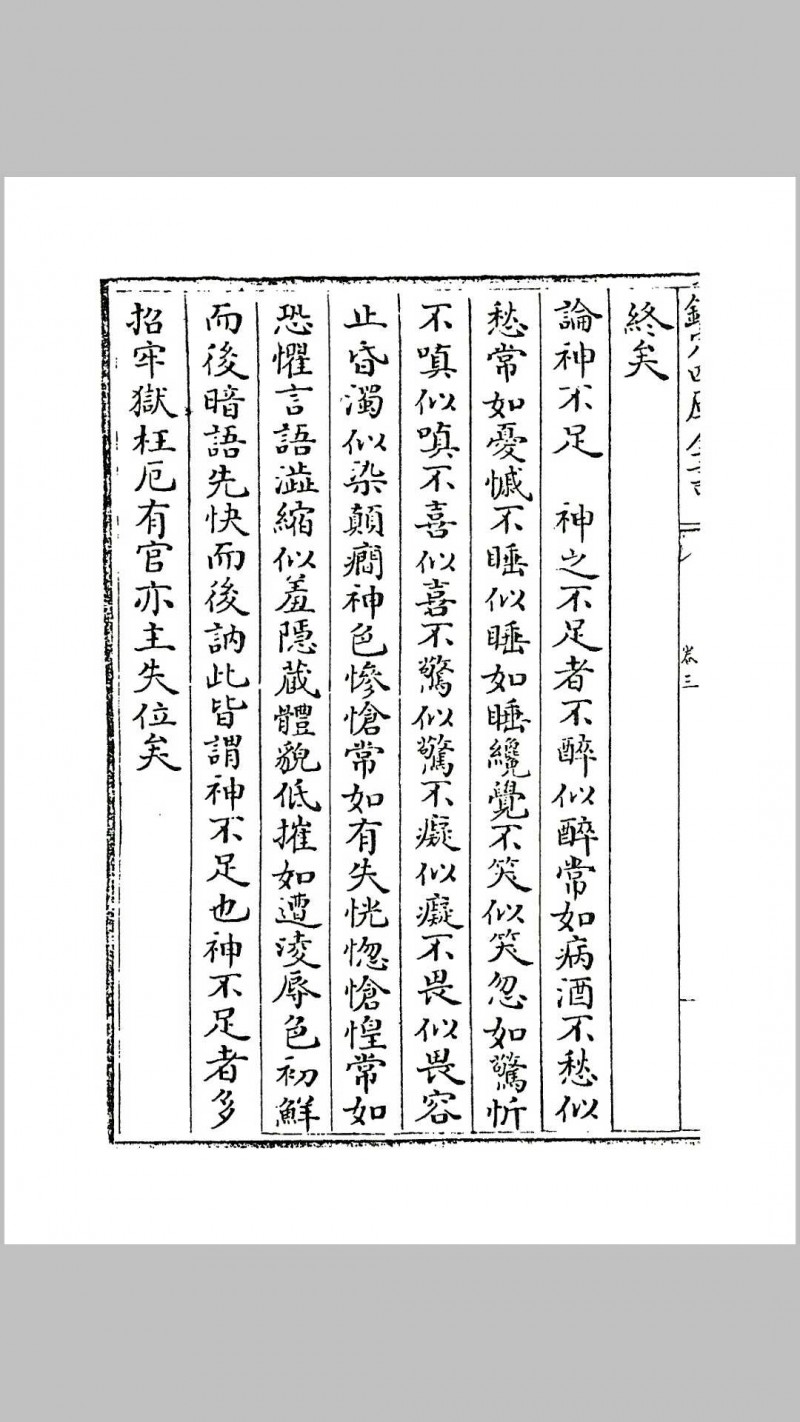 欽定四庫全書
卷三
終矣
論神不足　神之不足者不醉似醉常如病酒不愁似
愁常如憂慽不睡似睡如睡纔覺不笑似笑忽如驚忻
不嗔似嗔不喜似喜不驚似驚不癡似癡不畏似畏容
止昏濁似染顛癎神色慘愴常如有失恍惚愴惶常如
恐懼言語澁縮似羞隱藏體貌低摧如遭淩辱色初鮮
而後暗語先快而後訥此皆謂神不足也神不足者多
招牢獄枉厄有官亦主失位矣